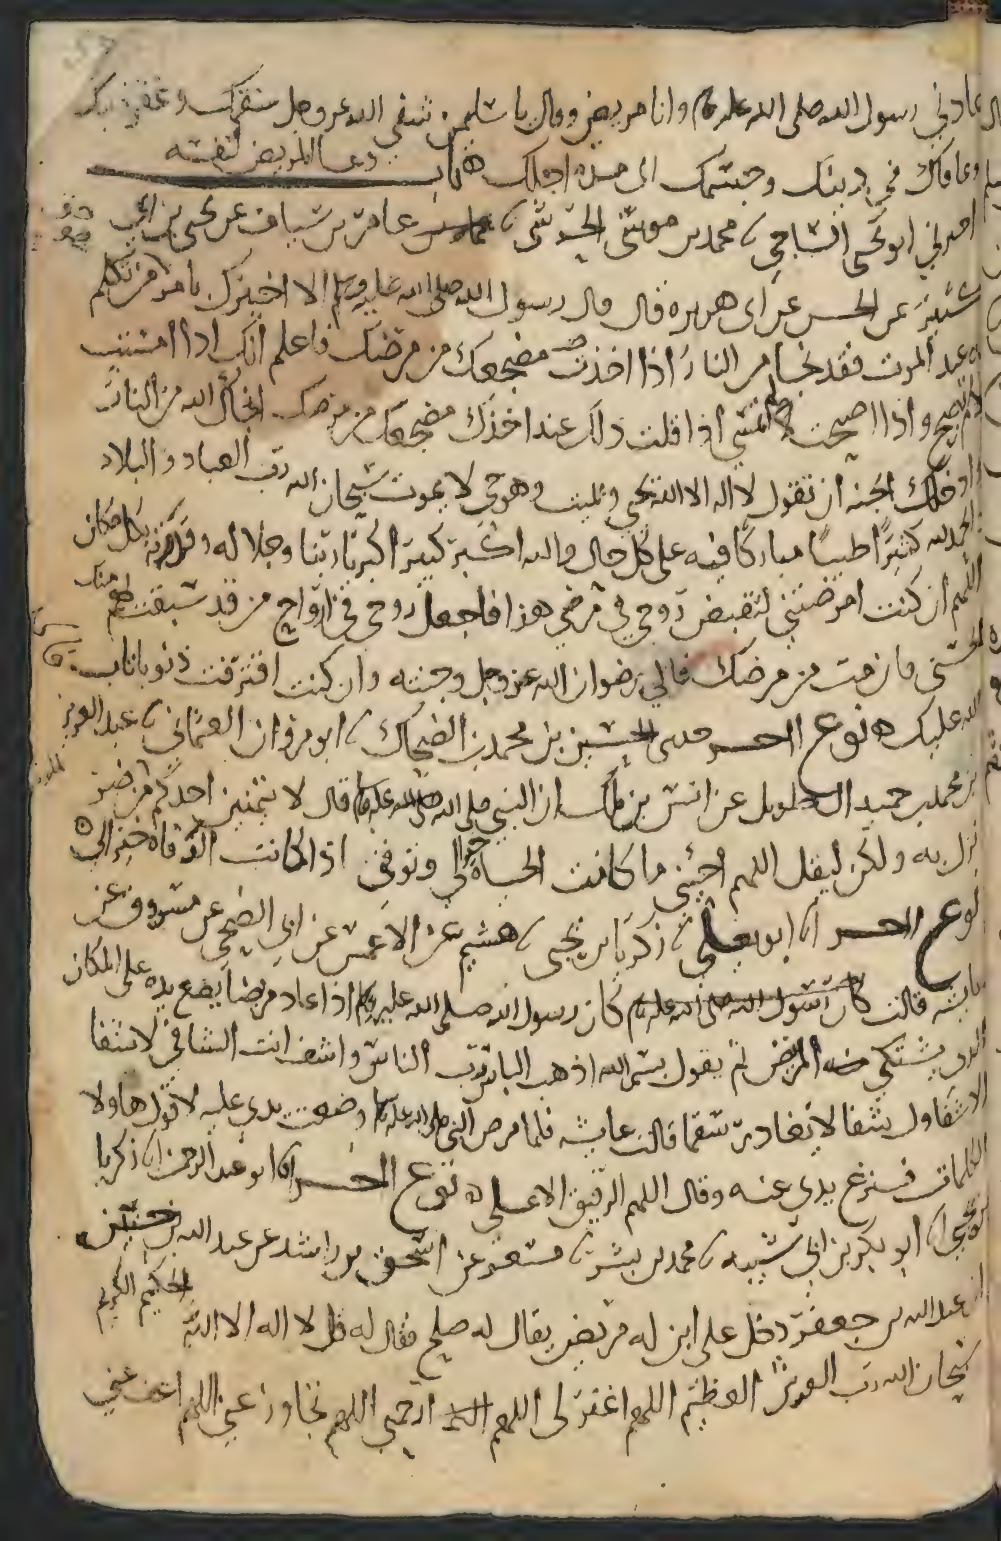 عادني رسول الله صلى الله عليه وانا مريض وقال يا سليمن شفى الله عز وجل سقمك وغفر ذنبك
وعافاك في دينك وجسمك الى مدة اجلك ه باب دعا المريض لنفسه
اخبرني ابو يحيى الساجي محمد بن موسى الحرشي عامر بن سياف عن يحيى بن ابي
عن الحسن عن ابي هريره قال قال رسول الله صلى الله عليه وسلم الا اخبرك بامر من تكلم
به عند الموت فقد نجا من النار اذا اخذت مضجعك من مرضك فاعلم انك اذا امسيت
لم تصبح واذا اصبحت لم تمسي اذا قلت ذلك عند اخذك مضجعك من مرضك انجاك الله من النار
وادخلك الجنه ان تقول لا اله الا الله يحيي ويميت وهو حي لا يموت سبحان الله رب العباد والبلاد
الحمد لله كثيرا طيبا مباركا فيه على كل حال والله اكبر كبيرا كبريا ربنا وجلاله وقدرته بكل مكان
اللهم ان كنت امرضتني لتقبض روحي في مرضي هذا فاجعل روحي في ارواح من قد سبقت لهم منك
الحسنى فان مت من مرضك فالى رضوان الله عز وجل وجنته وان كنت اقترفت ذنوبا تاب
الله عليك ه نوع اخر حدثني الحسين بن محمد بن الضحاك ابو مروان العثماني عبد العزيز
بن محمد حميد الطويل عن انس بن مالك ان النبي صلى الله عليه قال لا يتمنين احدكم الموت من ضر
نزل به ولكن ليقل اللهم احيني ما كانت الحياة خيرا لي وتوفني اذا كانت الوفاة خيرا لي ه
نوع اخر ابو يعلى زكريا بن يحيى هشيم عن الاعمش عن ابي الضحى عن مسروق عن
عايشه قالت كان رسول الله صلى الله عليه كان رسول الله صلى الله عليه وسلم اذا عاد مريضا يضع يده على المكان
الذي يشتكي المريض ثم يقول بسم الله اذهب الباس رب الناس واشف انت الشافي لا شفا
الا شفاوك شفا لا يغادر سقما قالت عايشه فلما مرض النبي صلى الله عليه وضعت يدي عليه لاقول هاولا
الكلمات فنزع يدي عنه وقال اللهم الرفيق الاعلى ه نوع اخر ابو عبد الرحمن زكريا
بن يحيى ابو بكر بن ابي شيبه محمد بن بشر مسعر عن اسحق بن راشد عن عبد الله بن حسن
ان عبد الله بن جعفر دخل على ابن له مريض يقال له صلح فقال له قل لا اله الا الله الحكيم الكريم
سبحان الله رب العرش العظيم اللهم اغفر لي اللهم ارحمني اللهم تجاوز عني اللهم اعف عني